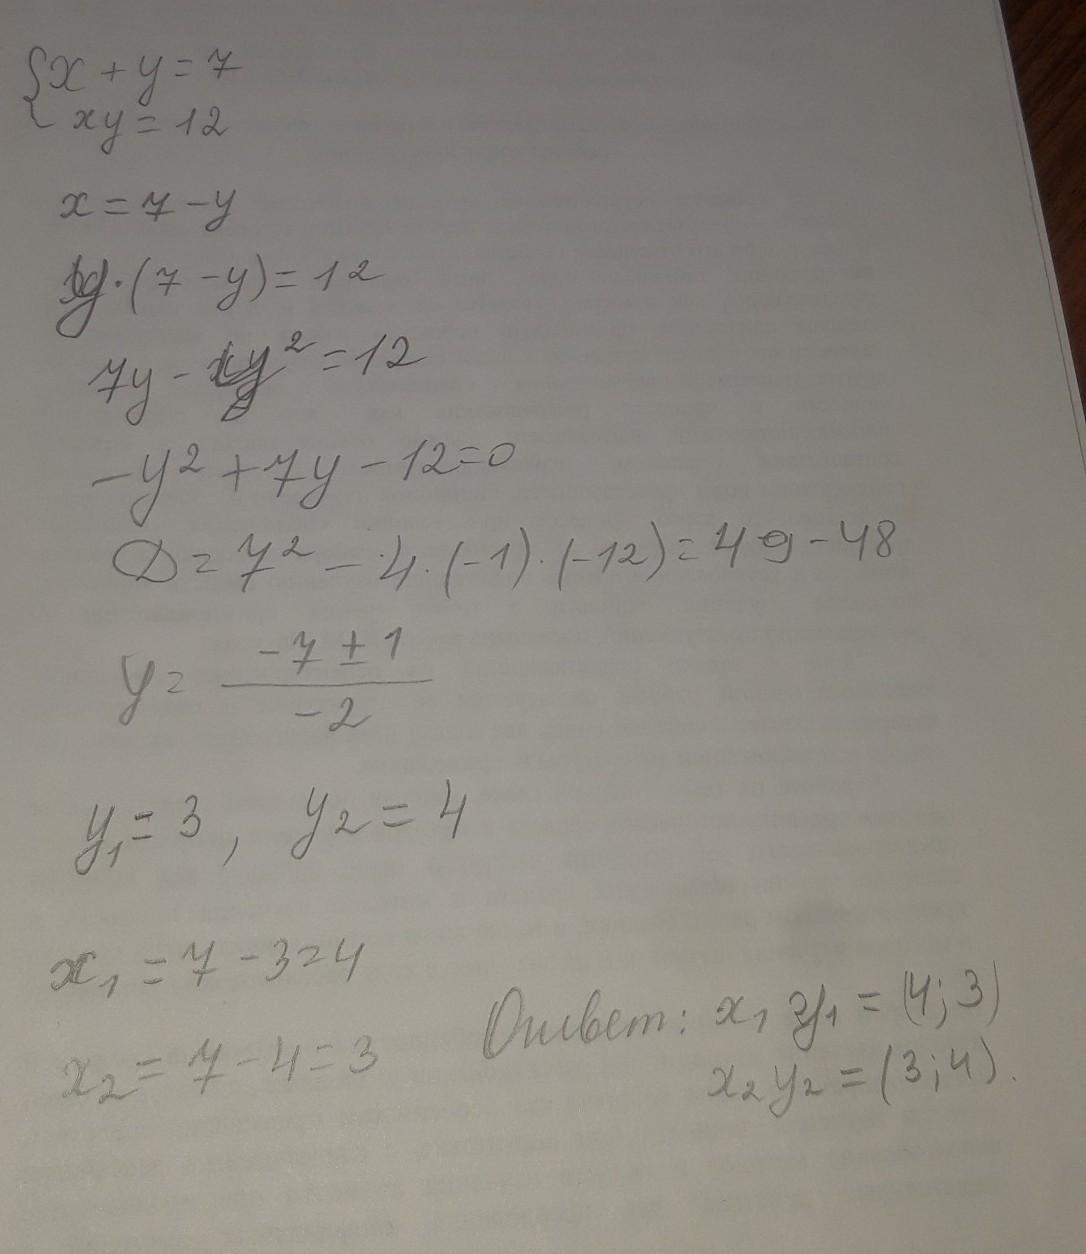 {x + y = 7
xy = 12
x = 7 - y
y·(7 - y) = 12
7y - y² = 12
-y² + 7y - 12 = 0
D = 7² - 4·(-1)·(-12) = 49 - 48
y = (-7 ± 1) / -2
y₁ = 3, y₂ = 4
x₁ = 7 - 3 = 4
x₂ = 7 - 4 = 3
Ответ: x₁ y₁ = (4; 3)
x₂ y₂ = (3; 4).